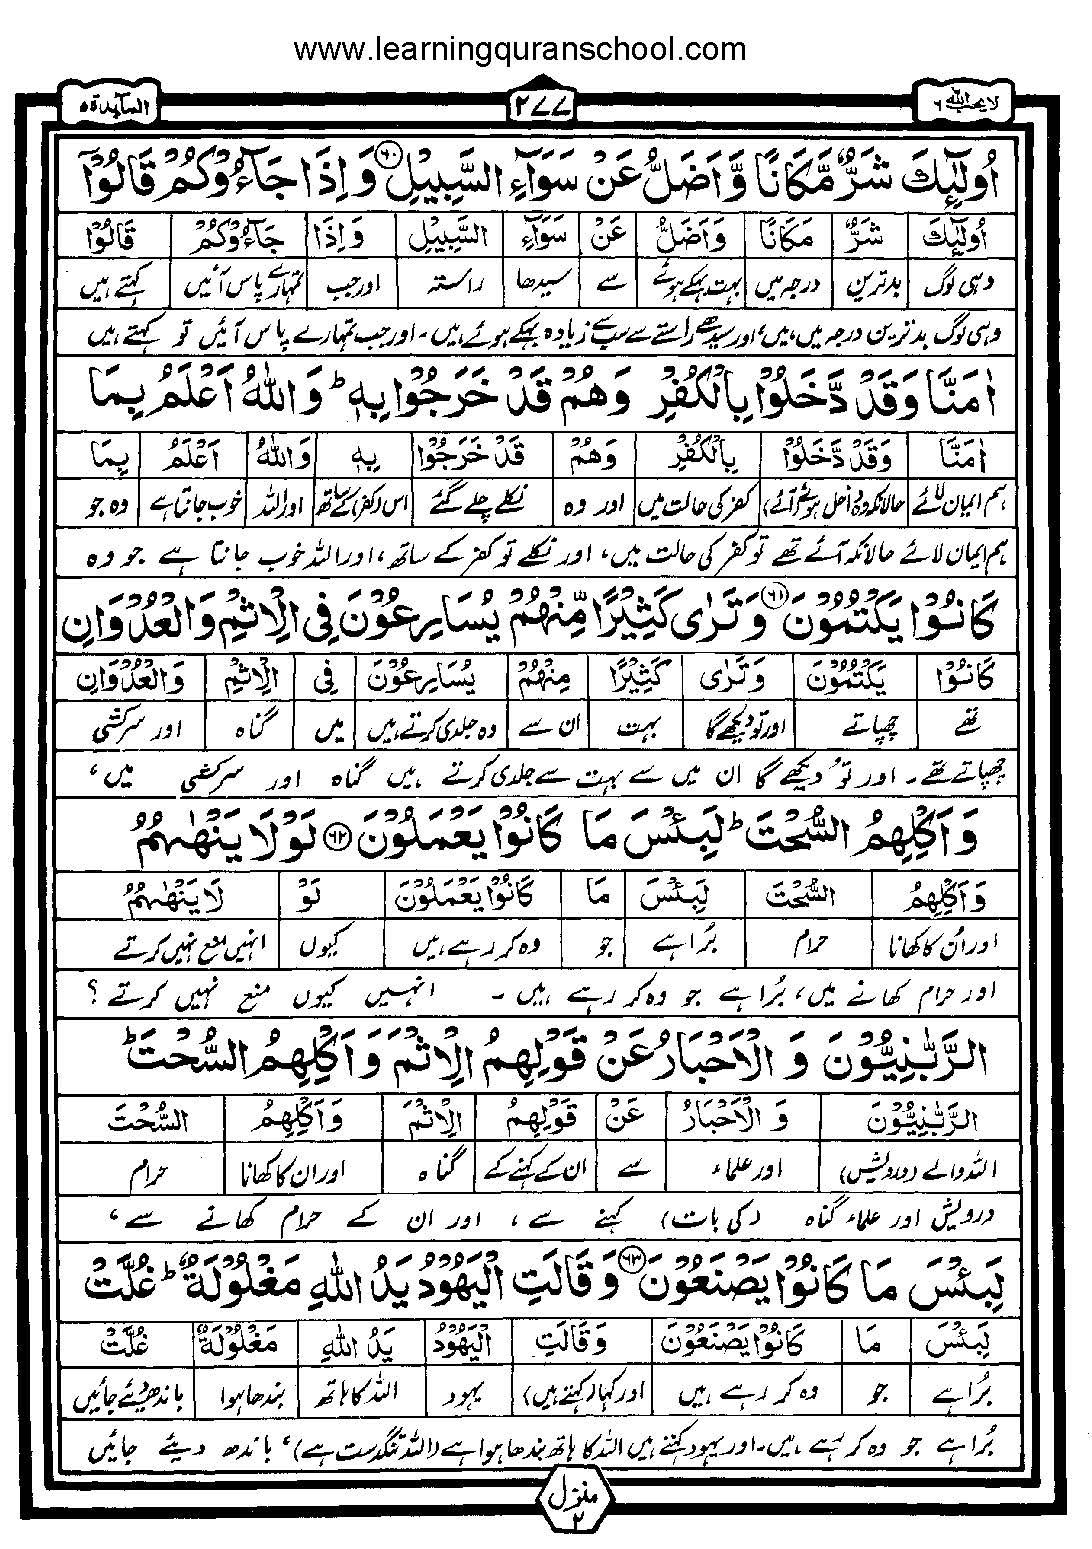 www.learningquranschool.com
لا یحب اللہ ۶
۲۷۷
المآىِٕدة ۵
اُولٰٓىِٕكَ شَرٌّ مَّكَانًا وَّاَضَلُّ عَنْ سَوَآءِ السَّبِیْلِ ۶۰ وَ اِذَا جَآءُوْكُمْ قَالُوْۤا
اُولٰٓىِٕكَ شَرٌّ مَكَانًا وَاَضَلُّ عَنْ سَوَآءِ السَّبِیْلِ وَاِذَا جَآءُوْكُمْ قَالُوْۤا
وہی لوگ بدترین درجہ میں بہت بہکے ہوئے سے سیدھا راستہ اور جب تمہارے پاس آئیں کہتے ہیں
وہی لوگ بدترین درجہ میں ہیں، اور سیدھے راستے سے سب سے زیادہ بہکے ہوئے ہیں۔ اور جب تمہارے پاس آئیں تو کہتے ہیں
اٰمَنَّا وَقَدْ دَّخَلُوْا بِالْكُفْرِ وَهُمْ قَدْ خَرَجُوْا بِهٖ ؕ وَاللّٰهُ اَعْلَمُ بِمَا
اٰمَنَّا وَقَدْ دَّخَلُوْا بِالْكُفْرِ وَهُمْ قَدْ خَرَجُوْا بِهٖ وَاللّٰهُ اَعْلَمُ بِمَا
ہم ایمان لائے حالانکہ وہ داخل ہوئے (آئے) کفر کی حالت میں اور وہ نکلے چلے گئے اس (کفر) کے ساتھ اور اللہ خوب جانتا ہے وہ جو
ہم ایمان لائے حالانکہ آئے تھے تو کفر کی حالت میں، اور نکلے تو کفر کے ساتھ، اور اللہ خوب جانتا ہے جو وہ
كَانُوْا یَكْتُمُوْنَ ۶۱ وَتَرٰى كَثِیْرًا مِّنْهُمْ یُسَارِعُوْنَ فِی الْاِثْمِ وَالْعُدْوَانِ
كَانُوْا یَكْتُمُوْنَ وَتَرٰى كَثِیْرًا مِنْهُمْ یُسَارِعُوْنَ فِی الْاِثْمِ وَالْعُدْوَانِ
تھے چھپاتے اور تو دیکھے گا بہت ان سے وہ جلدی کرتے ہیں میں گناہ اور سرکشی
چھپاتے تھے۔ اور تُو دیکھے گا ان میں سے بہت سے جلدی کرتے ہیں گناہ اور سرکشی میں،
وَاَكْلِهِمُ السُّحْتَ ؕ لَبِئْسَ مَا كَانُوْا یَعْمَلُوْنَ ۶۲ لَوْلَا یَنْهٰىهُمُ
وَاَكْلِهِمُ السُّحْتَ لَبِئْسَ مَا كَانُوْا یَعْمَلُوْنَ لَوْ لَا یَنْهٰىهُمُ
اور اُن کا کھانا حرام بُرا ہے جو وہ کر رہے ہیں کیوں انہیں منع نہیں کرتے
اور حرام کھانے میں، بُرا ہے جو وہ کر رہے ہیں۔ انہیں کیوں منع نہیں کرتے؟
الرَّبّٰنِیُّوْنَ وَ الْاَحْبَارُ عَنْ قَوْلِهِمُ الْاِثْمَ وَاَكْلِهِمُ السُّحْتَ ؕ
الرَّبّٰنِیُّوْنَ وَ الْاَحْبَارُ عَنْ قَوْلِهِمُ الْاِثْمَ وَاَكْلِهِمُ السُّحْتَ
اللہ والے (درویش) اور علماء سے ان کے کہنے کے گناہ اور ان کا کھانا حرام
درویش اور علماء گناہ (کی بات) کہنے سے، اور ان کے حرام کھانے سے،
لَبِئْسَ مَا كَانُوْا یَصْنَعُوْنَ ۶۳ وَقَالَتِ الْیَهُوْدُ یَدُ اللّٰهِ مَغْلُوْلَةٌ ؕ غُلَّتْ
لَبِئْسَ مَا كَانُوْا یَصْنَعُوْنَ وَقَالَتِ الْیَهُوْدُ یَدُ اللّٰهِ مَغْلُوْلَةٌ غُلَّتْ
بُرا ہے جو وہ کر رہے ہیں اور کہا (کہتے ہیں) یہود اللہ کا ہاتھ بندھا ہوا باندھ دیئے جائیں
بُرا ہے جو وہ کر رہے ہیں۔ اور یہود کہتے ہیں اللہ کا ہاتھ بندھا ہوا ہے (اللہ تنگدست ہے)، باندھ دیئے جائیں
منزل ۲